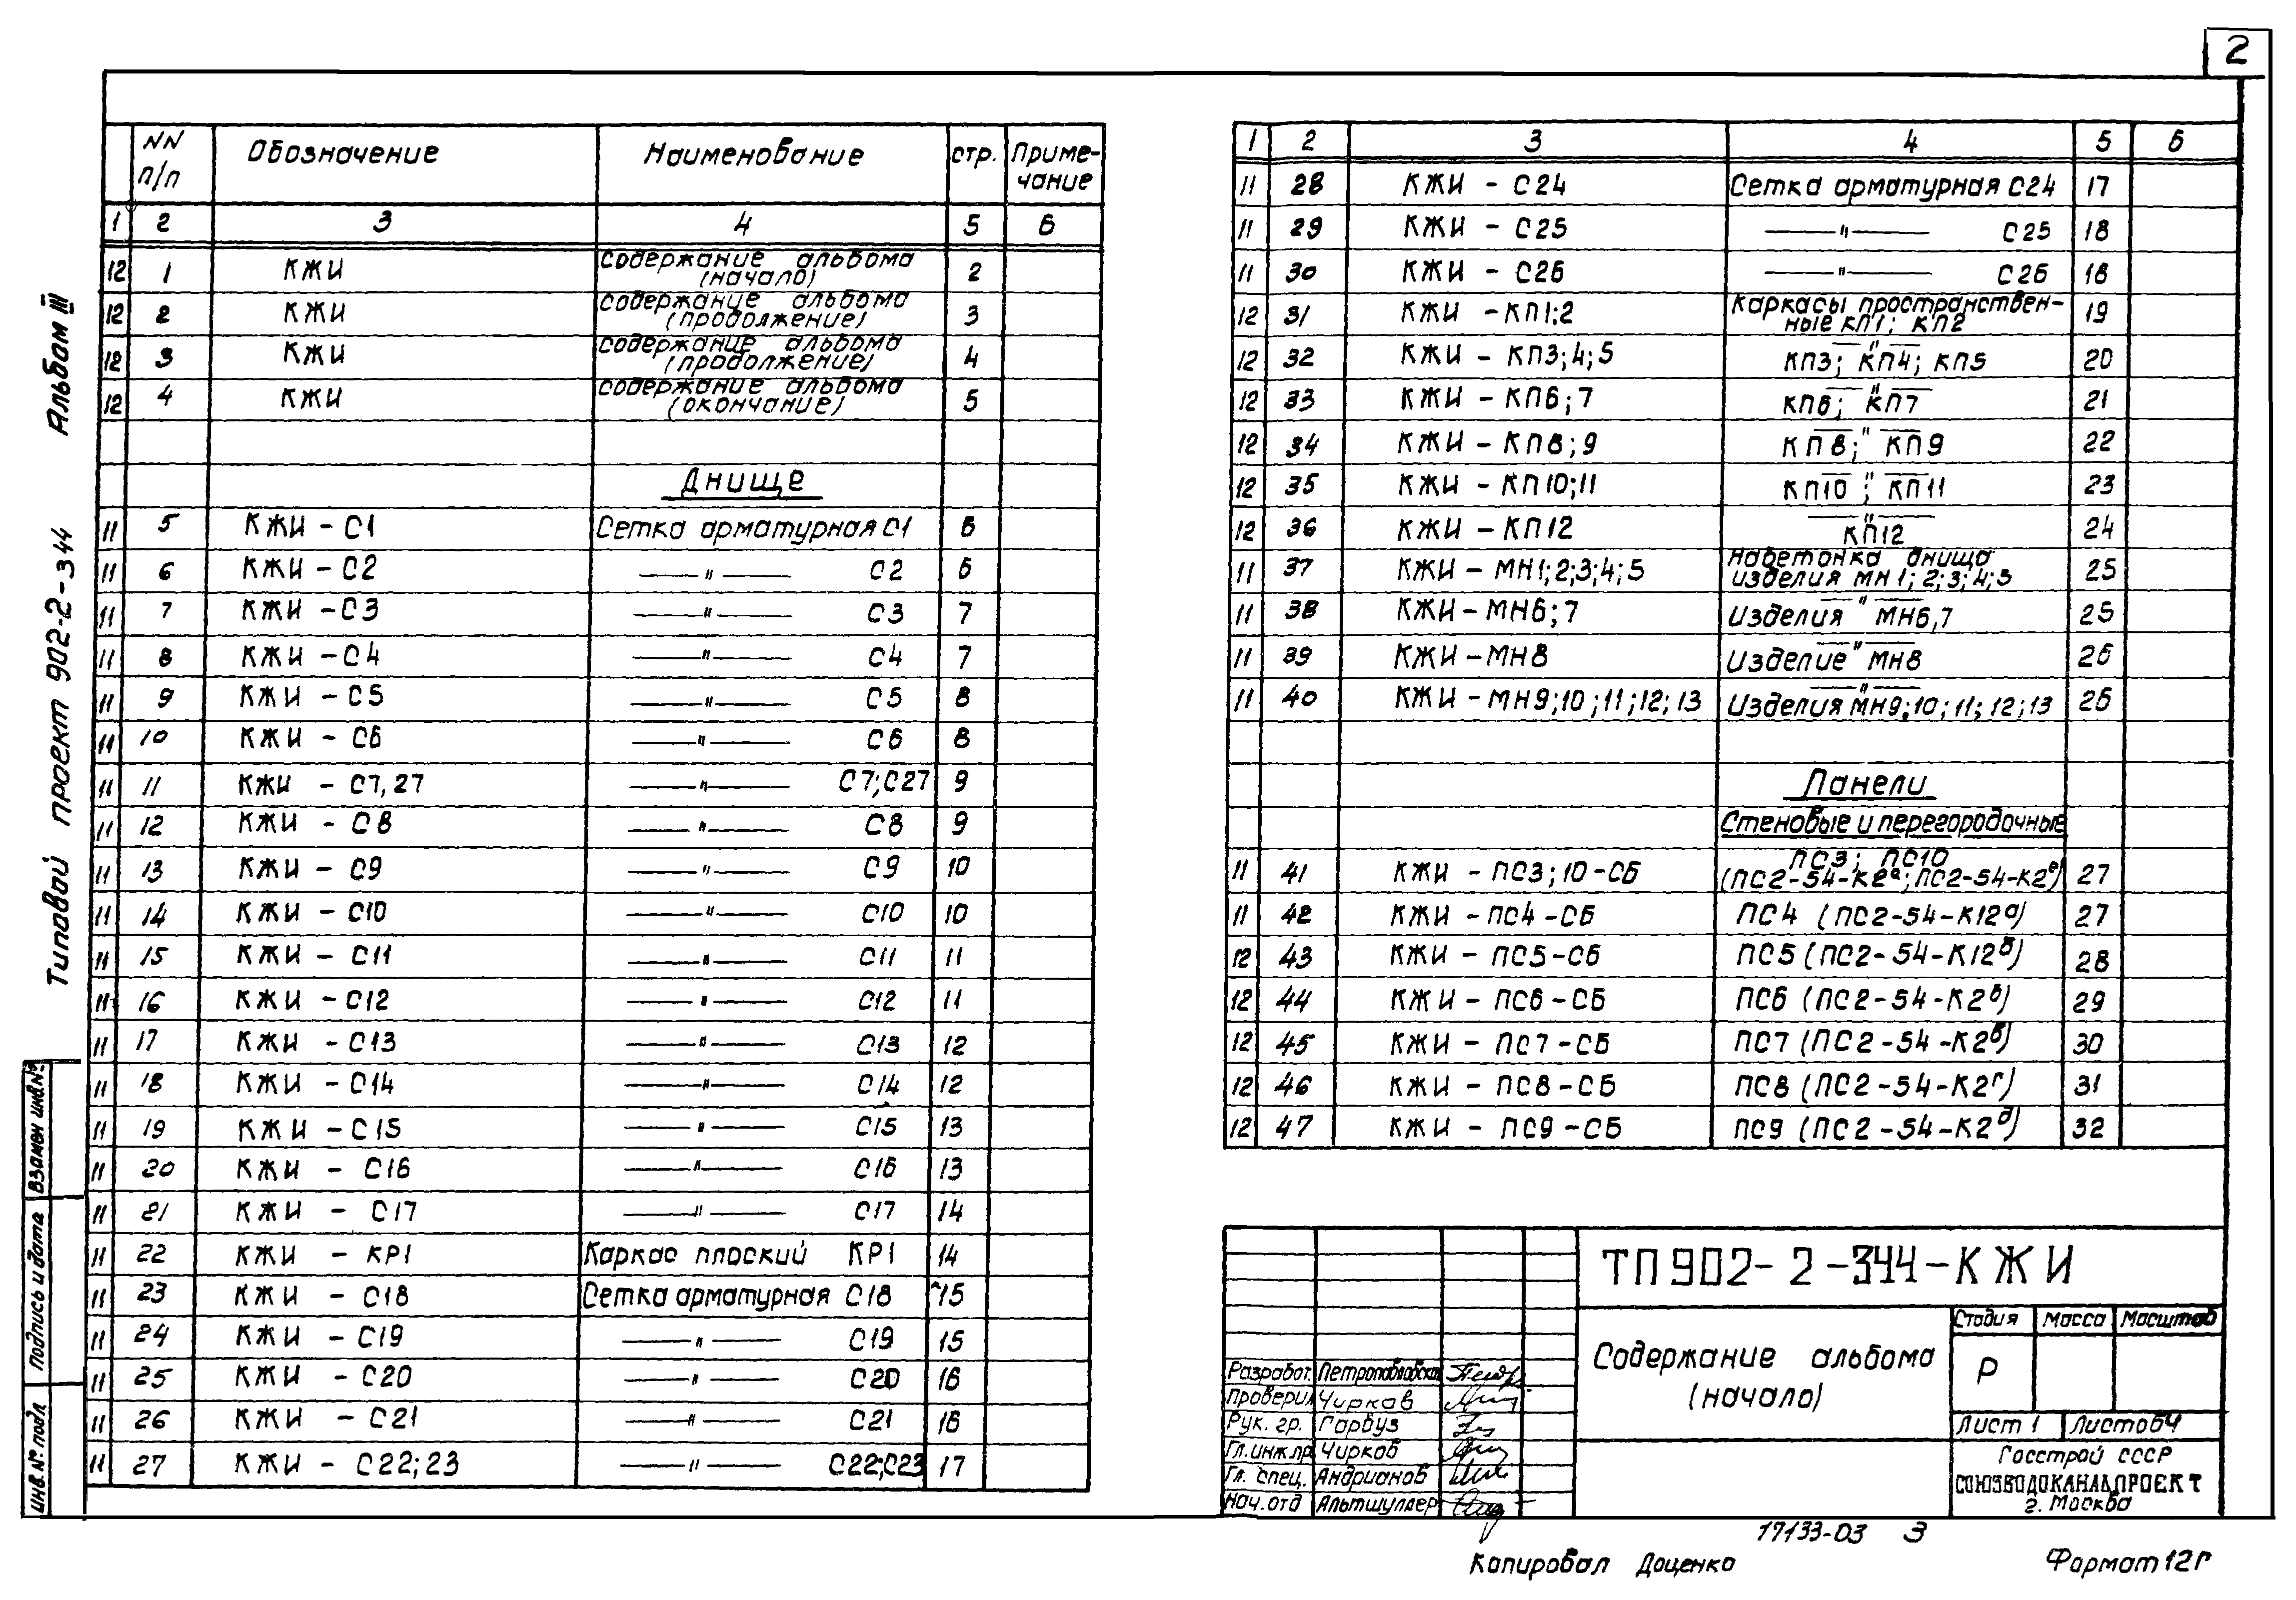 2
Альбом III
Типовой проект 902-2-344
NN п/п Обозначение Наименование стр. Примечание
1 2 3 4 5 6
12 1 КЖИ Содержание альбома (начало) 2
12 2 КЖИ Содержание альбома (продолжение) 3
12 3 КЖИ Содержание альбома (продолжение) 4
12 4 КЖИ Содержание альбома (окончание) 5
Днище
11 5 КЖИ - С1 Сетка арматурная С1 6
11 6 КЖИ - С2 —〃— С2 6
11 7 КЖИ - С3 —〃— С3 7
11 8 КЖИ - С4 —〃— С4 7
11 9 КЖИ - С5 —〃— С5 8
11 10 КЖИ - С6 —〃— С6 8
11 11 КЖИ - С7,27 —〃— С7;С27 9
11 12 КЖИ - С8 —〃— С8 9
11 13 КЖИ - С9 —〃— С9 10
11 14 КЖИ - С10 —〃— С10 10
11 15 КЖИ - С11 —〃— С11 11
11 16 КЖИ - С12 —〃— С12 11
11 17 КЖИ - С13 —〃— С13 12
11 18 КЖИ - С14 —〃— С14 12
11 19 КЖИ - С15 —〃— С15 13
11 20 КЖИ - С16 —〃— С16 13
11 21 КЖИ - С17 —〃— С17 14
11 22 КЖИ - КР1 Каркас плоский КР1 14
11 23 КЖИ - С18 Сетка арматурная С18 15
11 24 КЖИ - С19 —〃— С19 15
11 25 КЖИ - С20 —〃— С20 16
11 26 КЖИ - С21 —〃— С21 16
11 27 КЖИ - С22;23 —〃— С22;С23 17
1 2 3 4 5 6
11 28 КЖИ - С24 Сетка арматурная С24 17
11 29 КЖИ - С25 —〃— С25 18
11 30 КЖИ - С26 —〃— С26 18
12 31 КЖИ - КП1;2 Каркасы пространственные КП1; КП2 19
12 32 КЖИ - КП3;4;5 —〃— КП3; КП4; КП5 20
12 33 КЖИ - КП6;7 —〃— КП6; КП7 21
12 34 КЖИ - КП8;9 —〃— КП8; КП9 22
12 35 КЖИ - КП10;11 —〃— КП10; КП11 23
12 36 КЖИ - КП12 —〃— КП12 24
11 37 КЖИ - МН1;2;3;4;5 Набетонка днища изделия МН1;2;3;4;5 25
11 38 КЖИ - МН6;7 —〃— Изделия МН6,7 25
11 39 КЖИ - МН8 —〃— Изделие МН8 26
11 40 КЖИ - МН9;10;11;12;13 —〃— Изделия МН9;10;11;12;13 26
Панели
Стеновые и перегородочные
11 41 КЖИ - ПС3;10-СБ ПС3; ПС10 (ПС2-54-К2а; ПС2-54-К2е) 27
11 42 КЖИ - ПС4-СБ ПС4 (ПС2-54-К12а) 27
12 43 КЖИ - ПС5-СБ ПС5 (ПС2-54-К12б) 28
12 44 КЖИ - ПС6-СБ ПС6 (ПС2-54-К2б) 29
12 45 КЖИ - ПС7-СБ ПС7 (ПС2-54-К2в) 30
12 46 КЖИ - ПС8-СБ ПС8 (ПС2-54-К2г) 31
12 47 КЖИ - ПС9-СБ ПС9 (ПС2-54-К2д) 32
Взамен инв.№
Подпись и дата
Инв. № подл
ТП902-2-344-КЖИ
Содержание альбома
(начало)
Стадия Масса Масштаб
Р
Лист 1 Листов 4
Госстрой СССР
СОЮЗВОДОКАНАЛПРОЕКТ
г. Москва
Разработ. Петропавловская
Проверил Чирков
Рук. гр. Гарбуз
Гл.инж.пр Чирков
Гл. спец. Андрианов
Нач.отд Альтшуллер
17133-03 3
Копировал Доценко
Формат 12г